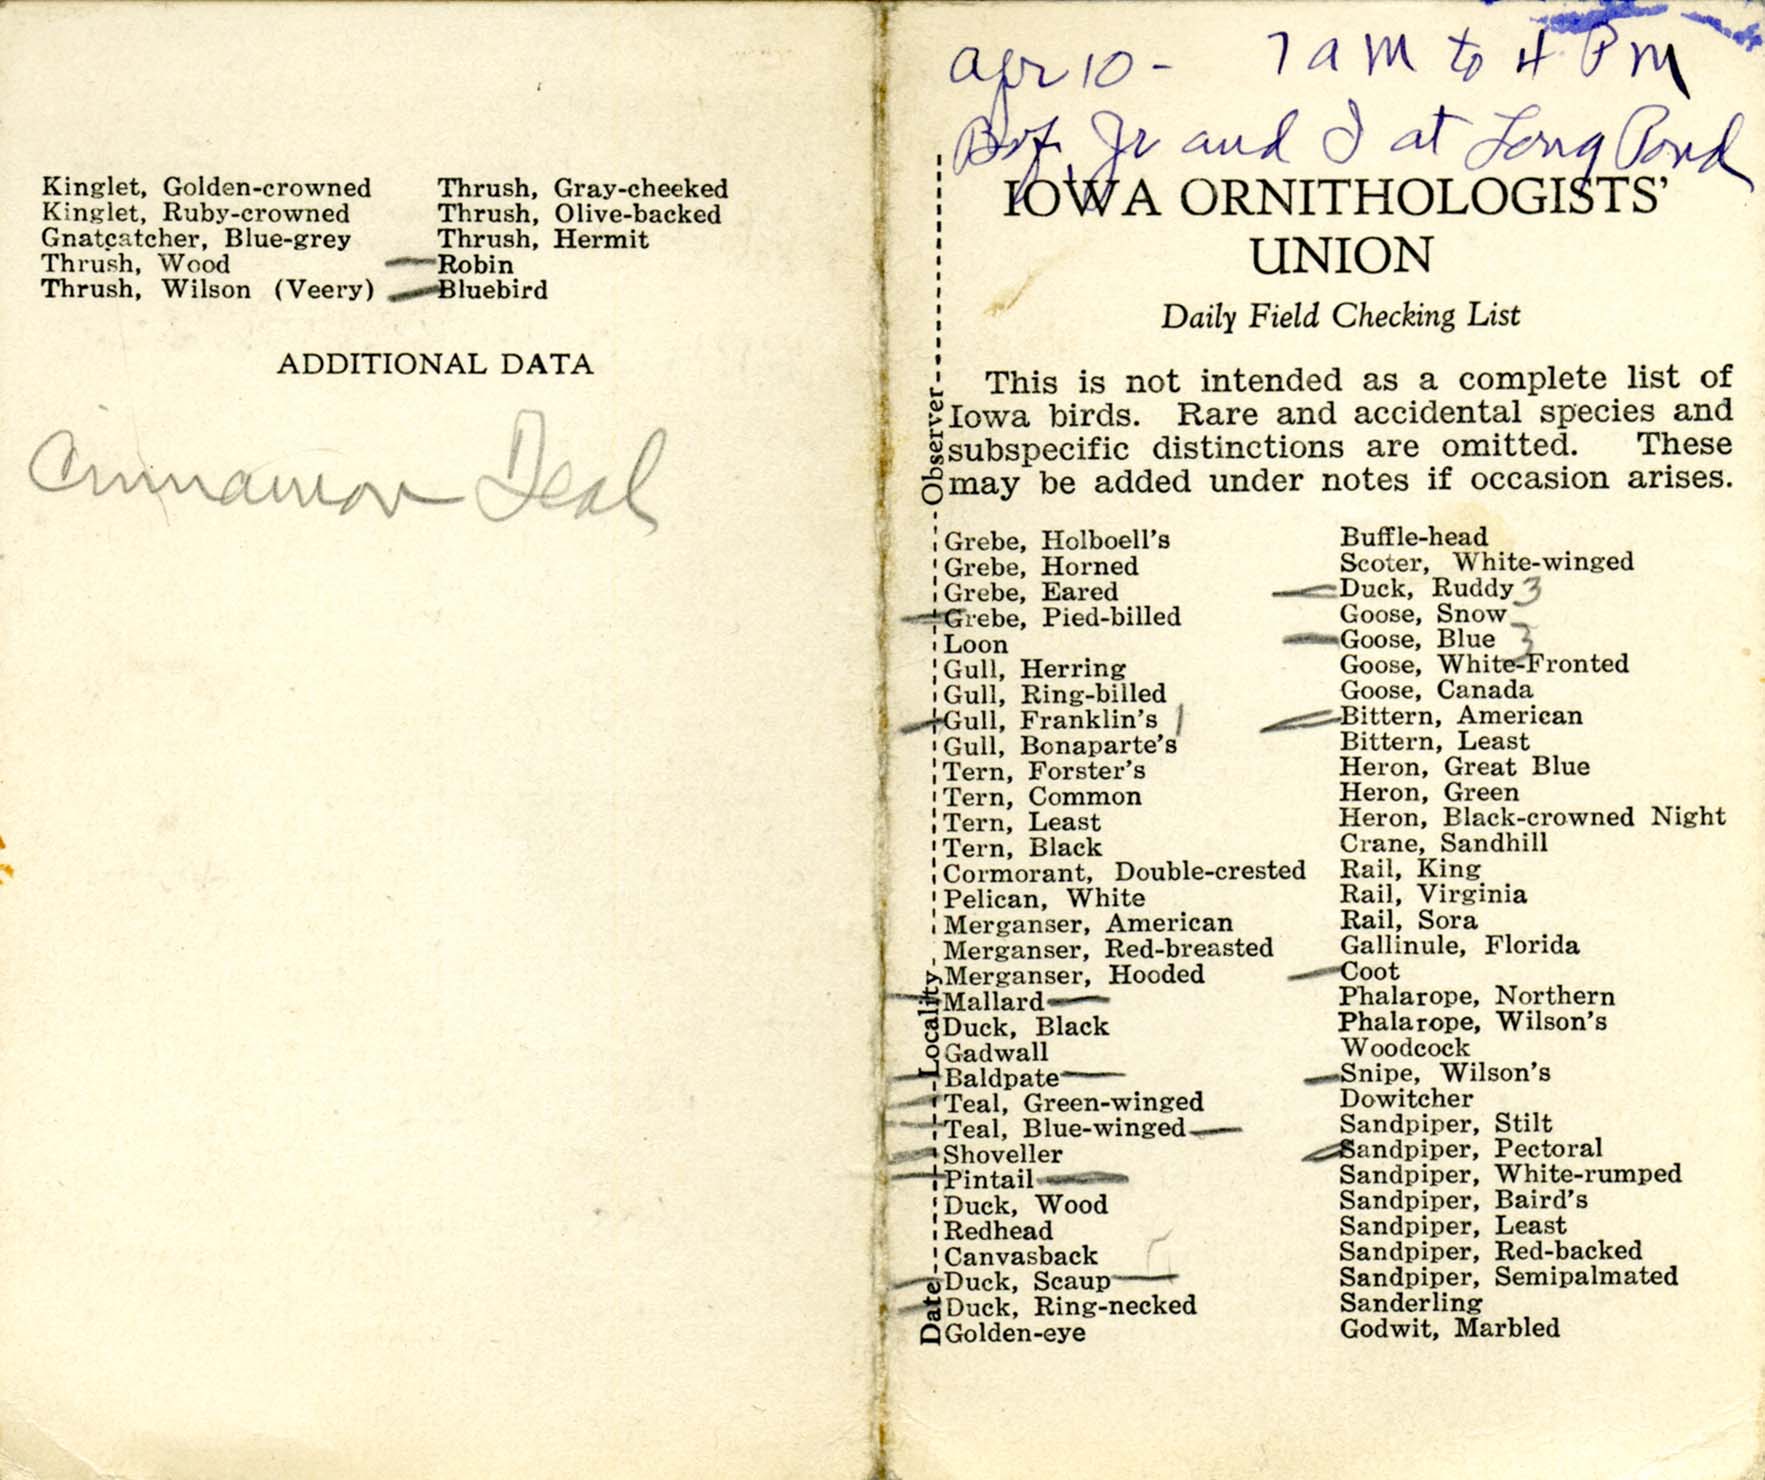 Kinglet, Golden-crowned
Kinglet, Ruby-crowned
Gnatcatcher, Blue-grey
Thrush, Wood
Thrush, Wilson (Veery)
Thrush, Gray-cheeked
Thrush, Olive-backed
Thrush, Hermit
Robin
Bluebird
ADDITIONAL DATA
Cinnamon Teal
Apr 10 - 7 AM to 4 PM
Jr and I at Long Pond
IOWA ORNITHOLOGISTS'
UNION
Daily Field Checking List
This is not intended as a complete list of
Iowa birds. Rare and accidental species and
subspecific distinctions are omitted. These
may be added under notes if occasion arises.
Date Locality Observer
Grebe, Holboell's
Grebe, Horned
Grebe, Eared
Grebe, Pied-billed
Loon
Gull, Herring
Gull, Ring-billed
Gull, Franklin's 1
Gull, Bonaparte's
Tern, Forster's
Tern, Common
Tern, Least
Tern, Black
Cormorant, Double-crested
Pelican, White
Merganser, American
Merganser, Red-breasted
Merganser, Hooded
Mallard
Duck, Black
Gadwall
Baldpate
Teal, Green-winged
Teal, Blue-winged
Shoveller
Pintail
Duck, Wood
Redhead
Canvasback
Duck, Scaup
Duck, Ring-necked
Golden-eye
Buffle-head
Scoter, White-winged
Duck, Ruddy 3
Goose, Snow
Goose, Blue 3
Goose, White-Fronted
Goose, Canada
Bittern, American
Bittern, Least
Heron, Great Blue
Heron, Green
Heron, Black-crowned Night
Crane, Sandhill
Rail, King
Rail, Virginia
Rail, Sora
Gallinule, Florida
Coot
Phalarope, Northern
Phalarope, Wilson's
Woodcock
Snipe, Wilson's
Dowitcher
Sandpiper, Stilt
Sandpiper, Pectoral
Sandpiper, White-rumped
Sandpiper, Baird's
Sandpiper, Least
Sandpiper, Red-backed
Sandpiper, Semipalmated
Sanderling
Godwit, Marbled